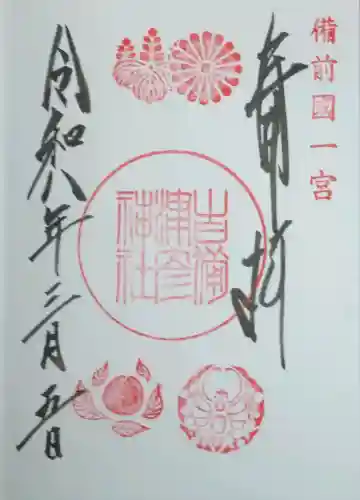 備前國一宮
拝
吉備
津彦
神社
令和八年三月五日